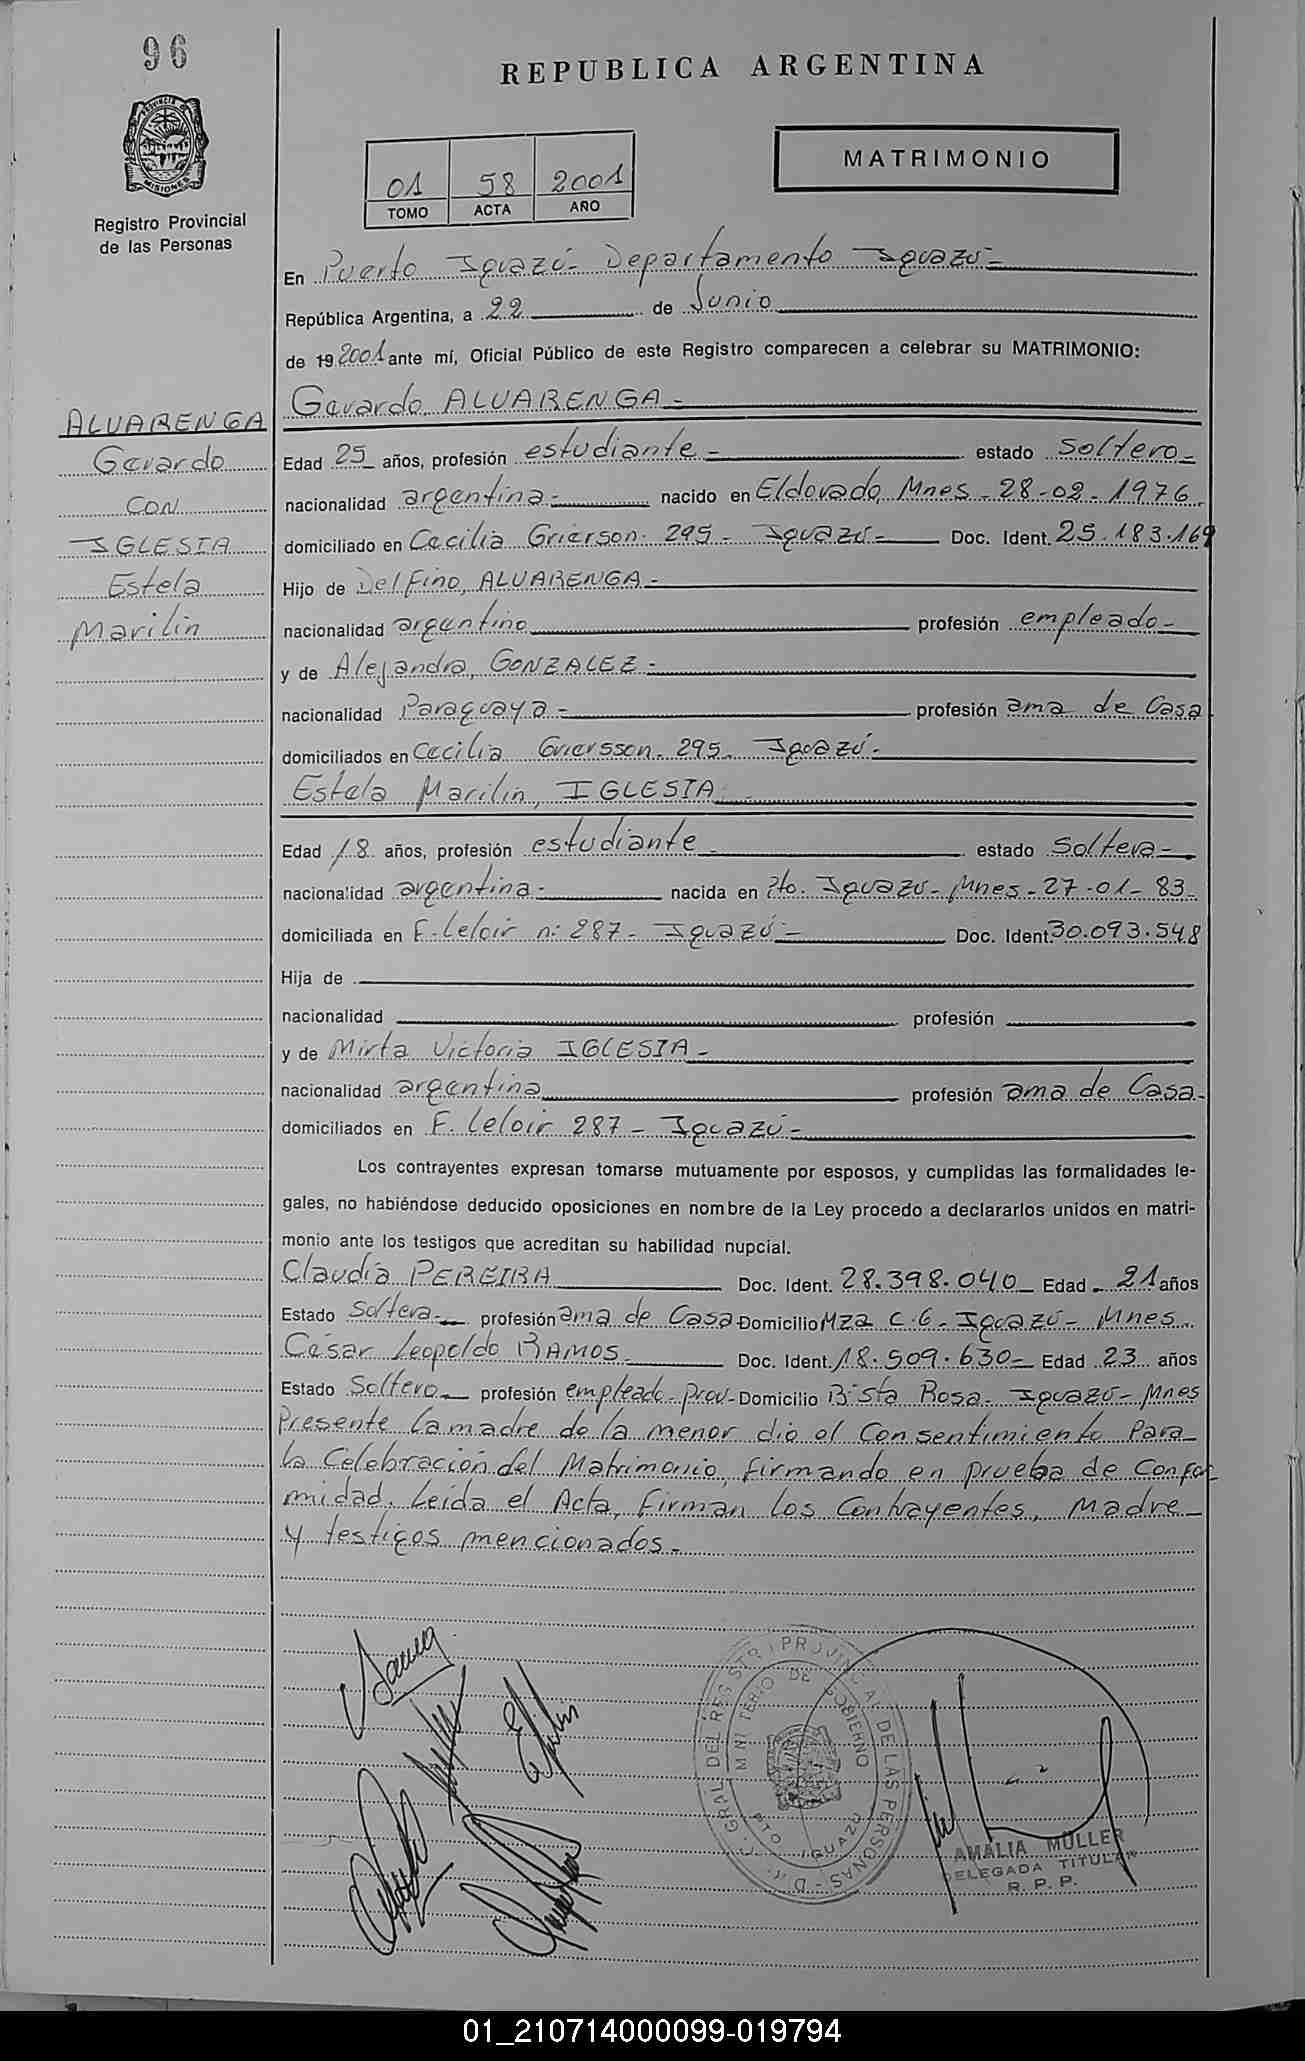 96
REPUBLICA ARGENTINA
PROVINCIA DE MISIONES
Registro Provincial
de las Personas
01 58 2001
TOMO ACTA AÑO
MATRIMONIO
En Puerto Iguazú - Departamento Iguazú -
República Argentina, a 22 de Junio
de 19 2001 ante mí, Oficial Público de este Registro comparecen a celebrar su MATRIMONIO:
ALVARENGA
Gerardo
CON
IGLESIA
Estela
Marilin
Gerardo ALVARENGA -
Edad 25 años, profesión estudiante - estado Soltero -
nacionalidad argentina - nacido en Eldorado, Mnes - 28-02-1976
domiciliado en Cecilia Grierson. 295 - Iguazú - Doc. Ident. 25.183.169
Hijo de Delfino, ALVARENGA -
nacionalidad argentino profesión empleado -
y de Alejandra, GONZALEZ -
nacionalidad Paraguaya - profesión ama de Casa
domiciliados en Cecilia Griersson - 295 - Iguazú -
Estela Marilin, IGLESIA -
Edad 18 años, profesión estudiante - estado Soltera -
nacionalidad argentina - nacida en Pto. Iguazú - Mnes - 27-01-83 -
domiciliada en F. Leloir n: 287 - Iguazú - Doc. Ident. 30.093.548
Hija de
nacionalidad profesión
y de Mirta Victoria IGLESIA -
nacionalidad argentina profesión ama de Casa -
domiciliados en F. Leloir 287 - Iguazú -
Los contrayentes expresan tomarse mutuamente por esposos, y cumplidas las formalidades le-
gales, no habiéndose deducido oposiciones en nombre de la Ley procedo a declararlos unidos en matri-
monio ante los testigos que acreditan su habilidad nupcial.
Claudia PEREIRA Doc. Ident. 28.398.040 - Edad - 21 años
Estado Soltera - profesión ama de Casa Domicilio Mza C.6 - Iguazú - Mnes.
César Leopoldo RAMOS Doc. Ident. 18.509.630 - Edad 23 años
Estado Soltero - profesión empleado - prov - Domicilio Bº Sta Rosa - Iguazú - Mnes
Presente la madre de la menor dio el Consentimiento Para
la Celebración del Matrimonio, firmando en prueba de Confor
midad. Leída el Acta, firman los Contrayentes, Madre
y testigos mencionados -
DIR. GRAL. DEL REGISTRO PROVINCIAL DE LAS PERSONAS
MINISTERIO DE GOBIERNO
PTO. IGUAZU
AMALIA MÜLLER
DELEGADA TITULAR
R. P. P.
01_210714000099-019794